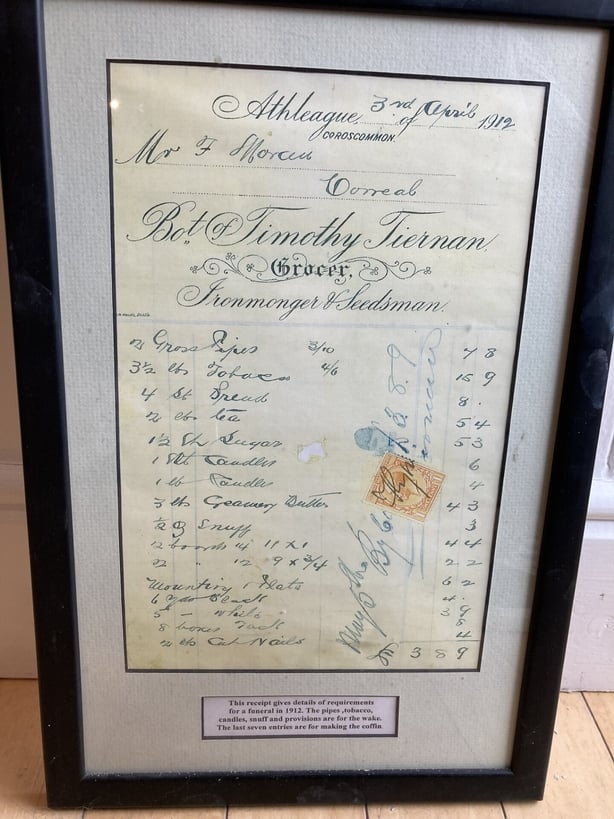 Athleague, 3rd of April 1912
CO ROSCOMMON.
Mr F Moran
Correal
Bot. of Timothy Tiernan,
Grocer,
Ironmonger & Seedsman.
2 Gross Pipes 3/10 7 8
3½ lbs Tobacco 4/6 15 9
4 St Bread 8 .
2 lbs tea 5 4
1½ St Sugar 5 3
1 Candles 6
1 lb Candles 4
3 lbs Creamery Butter 4 3
Snuff 3
2 boards 14 11 x 1 4 4
2 " 12 9 x ¾ 2 2
Mounting Plate 6 2
6 yds Black 4 .
5 - White 3 9
8 boxes Tack 8
2 lbs Cut Nails 4
3 8 9
£3.8.9
This receipt gives details of requirements
for a funeral in 1912. The pipes ,tobacco,
candles, snuff and provisions are for the wake.
The last seven entries are for making the coffin